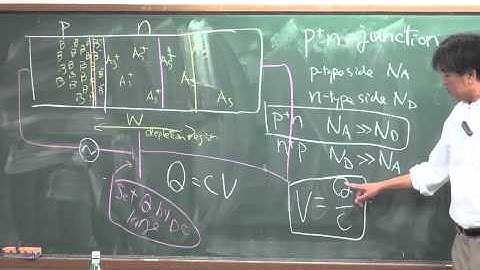 p n
B B B B
B B B B
B B B B
B B B
As+ As+ As+ As+
As+ As+ As
As
W
depletion region
Set Q by
large DC
Q=CV
p+n junction
p-type side NA
n-type side ND
p+n NA >> ND
n+p ND >> NA
V = Q/C